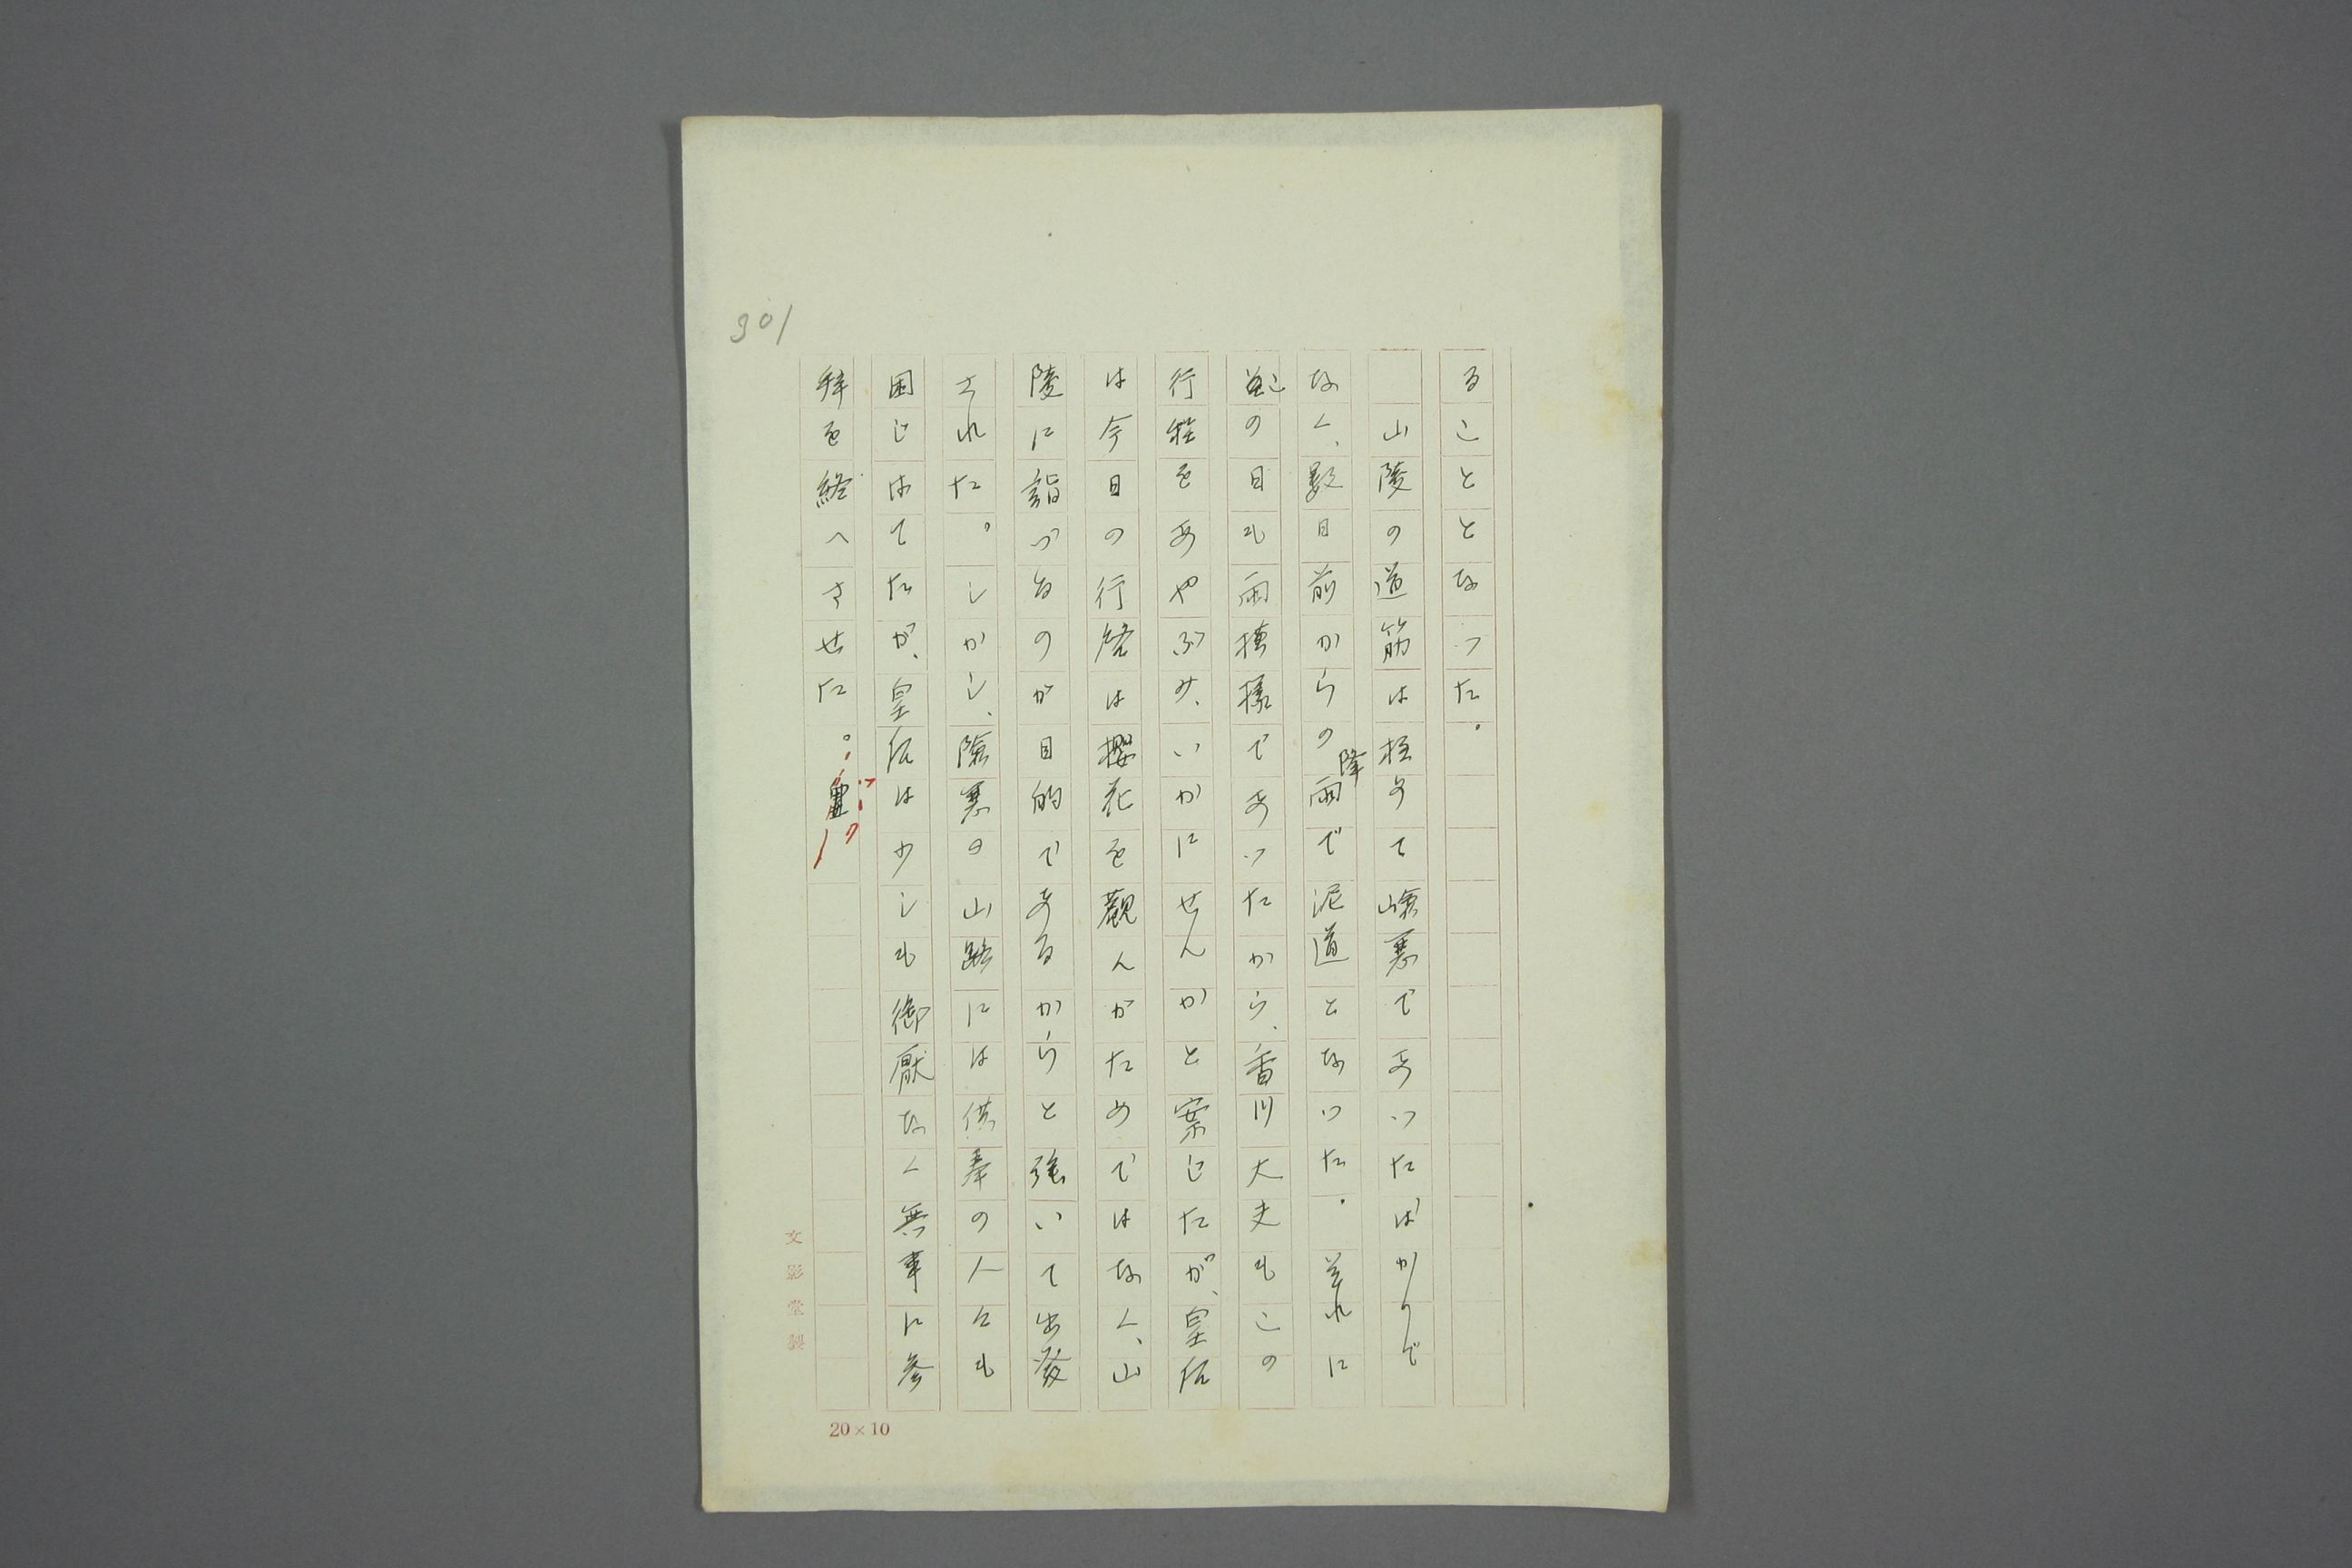 301
ることとなつた。
山陵の道筋は極めて嶮悪であつたばかりで
なく、数日前からの降雨で泥道となつた。それに
この日も雨模様であつたから、香川大夫もこの
行程をあやぶみ、いかにせんかと案じたが、皇后
は今日の行啓は櫻花を観んがためではなく、山
陵に詣づるのが目的であるからと強いて出発
された。しかし、險悪の山路には供奉の人々も
困じはてたが、皇后は少しも御厭なく無事に参
拝を終へさせた。
文影堂製
20×10